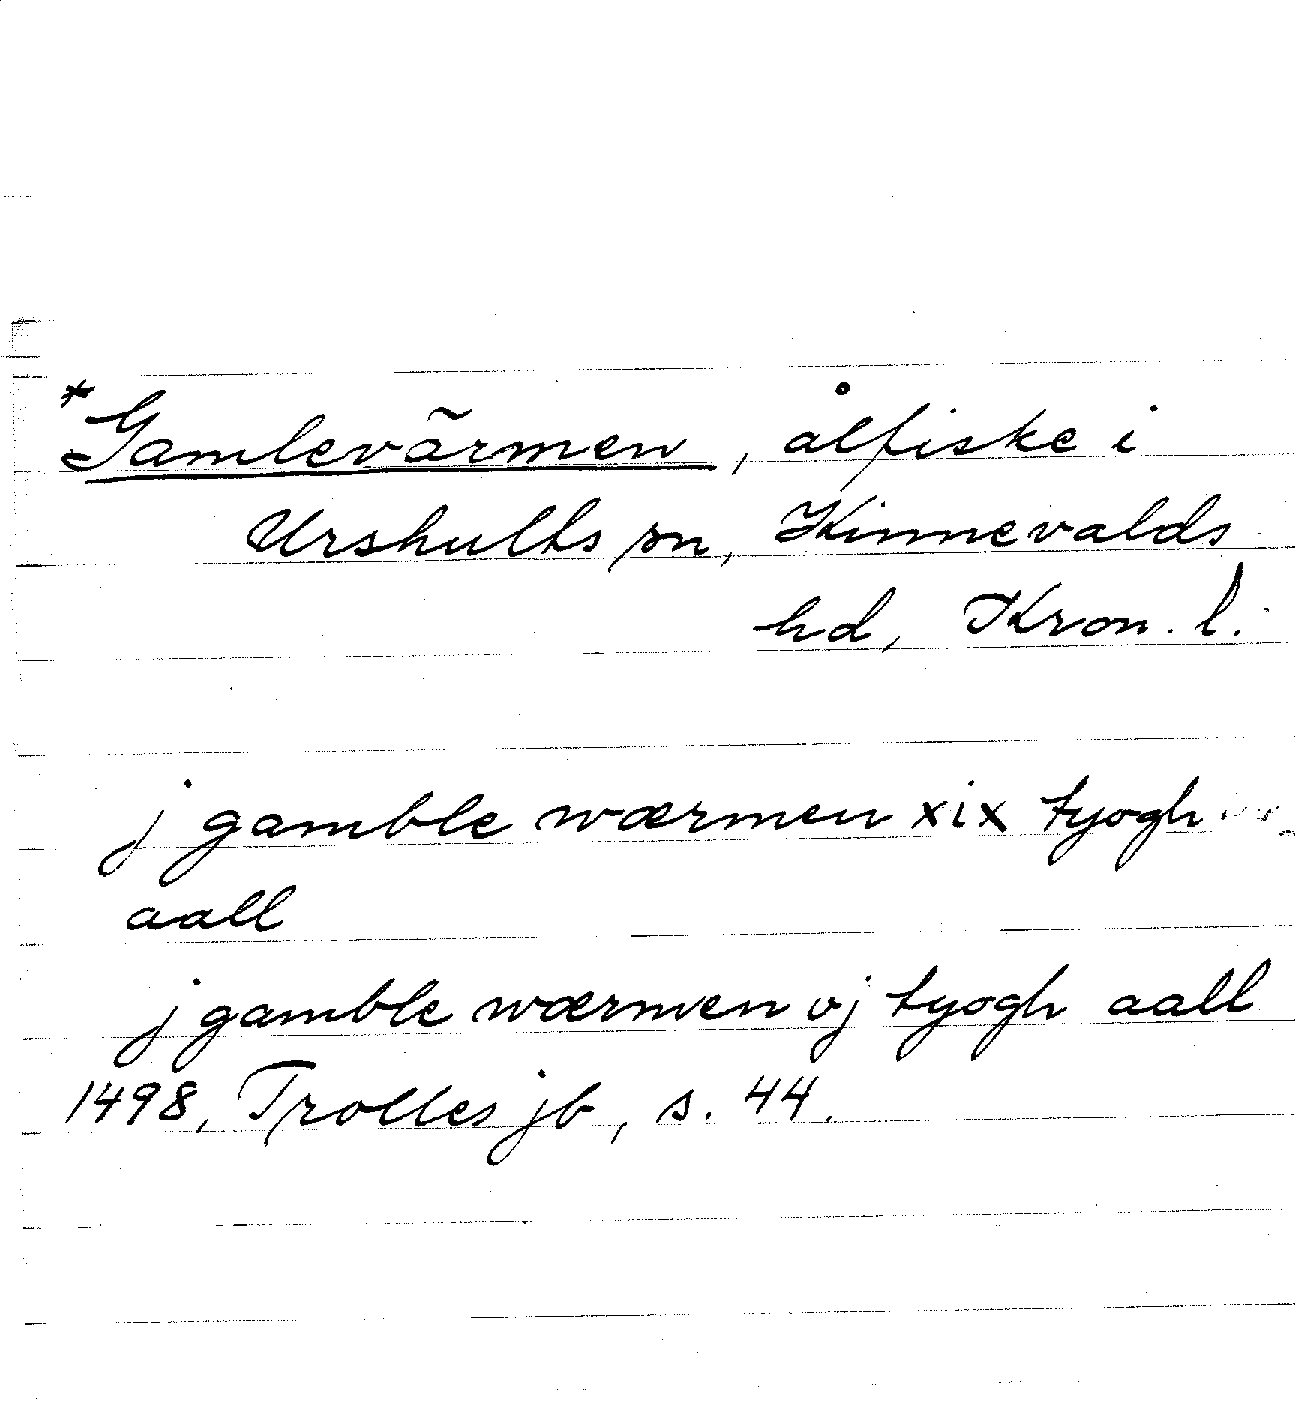 *Gamlevärmen, ålfiske i
Urshults sn, Kinnevalds
hd, Kron. l.
j gamble wærmen xix tyogh
aall
j gamble wærmen vj tyogh aall
1498, Trolles jb, s. 44.